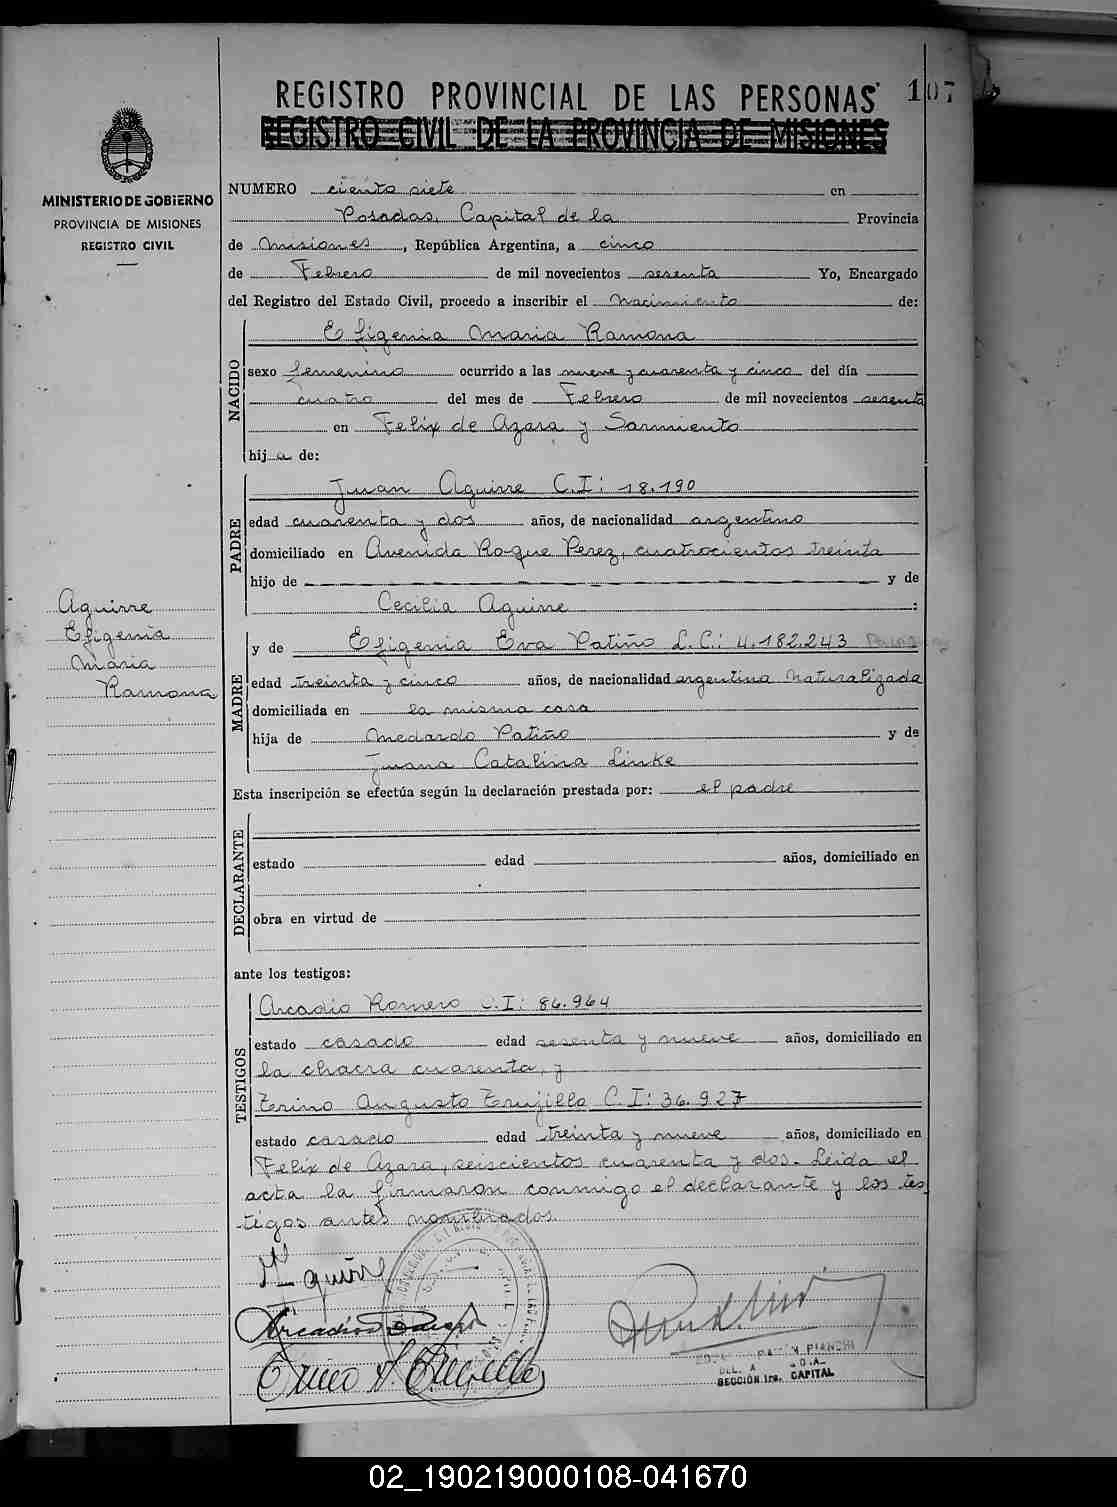 REGISTRO PROVINCIAL DE LAS PERSONAS 107
REGISTRO CIVIL DE LA PROVINCIA DE MISIONES
MINISTERIO DE GOBIERNO
PROVINCIA DE MISIONES
REGISTRO CIVIL
NUMERO ciento siete en
Posadas, Capital de la Provincia
de Misiones, República Argentina, a cinco
de Febrero de mil novecientos sesenta Yo, Encargado
del Registro del Estado Civil, procedo a inscribir el Nacimiento de:
NACIDO
Efigenia Maria Ramona
sexo femenino ocurrido a las nueve y cuarenta y cinco del día
cuatro del mes de Febrero de mil novecientos sesenta
en Felix de Azara y Sarmiento
hija de:
PADRE
Juan Aguirre C.I: 18.190
edad cuarenta y dos años, de nacionalidad argentino
domiciliado en Avenida Roque Perez, cuatrocientos treinta
hijo de y de
Cecilia Aguirre :
Aguirre
Efigenia
Maria
Ramona
MADRE
y de Efigenia Eva Patiño L.C.: 4.182.243
edad treinta y cinco años, de nacionalidad argentina Naturalizada
domiciliada en la misma casa
hija de Medardo Patiño y de
Juana Catalina Linke
Esta inscripción se efectúa según la declaración prestada por: el padre
DECLARANTE
estado edad años, domiciliado en
obra en virtud de
ante los testigos:
TESTIGOS
Arcadio Romero C.I: 86.964
estado casado edad sesenta y nueve años, domiciliado en
la chacra cuarenta, y
Trino Augusto Trujillo C.I: 36.927
estado casado edad treinta y nueve años, domiciliado en
Felix de Azara, seiscientos cuarenta y dos. Leida el
acta la firmaron conmigo el declarante y los tes
tigos antes nombrados.
Aguirre
Arcadio
Trino A. Trujillo
BIANCHI
SECCIÓN 1ra. CAPITAL
02_190219000108-041670